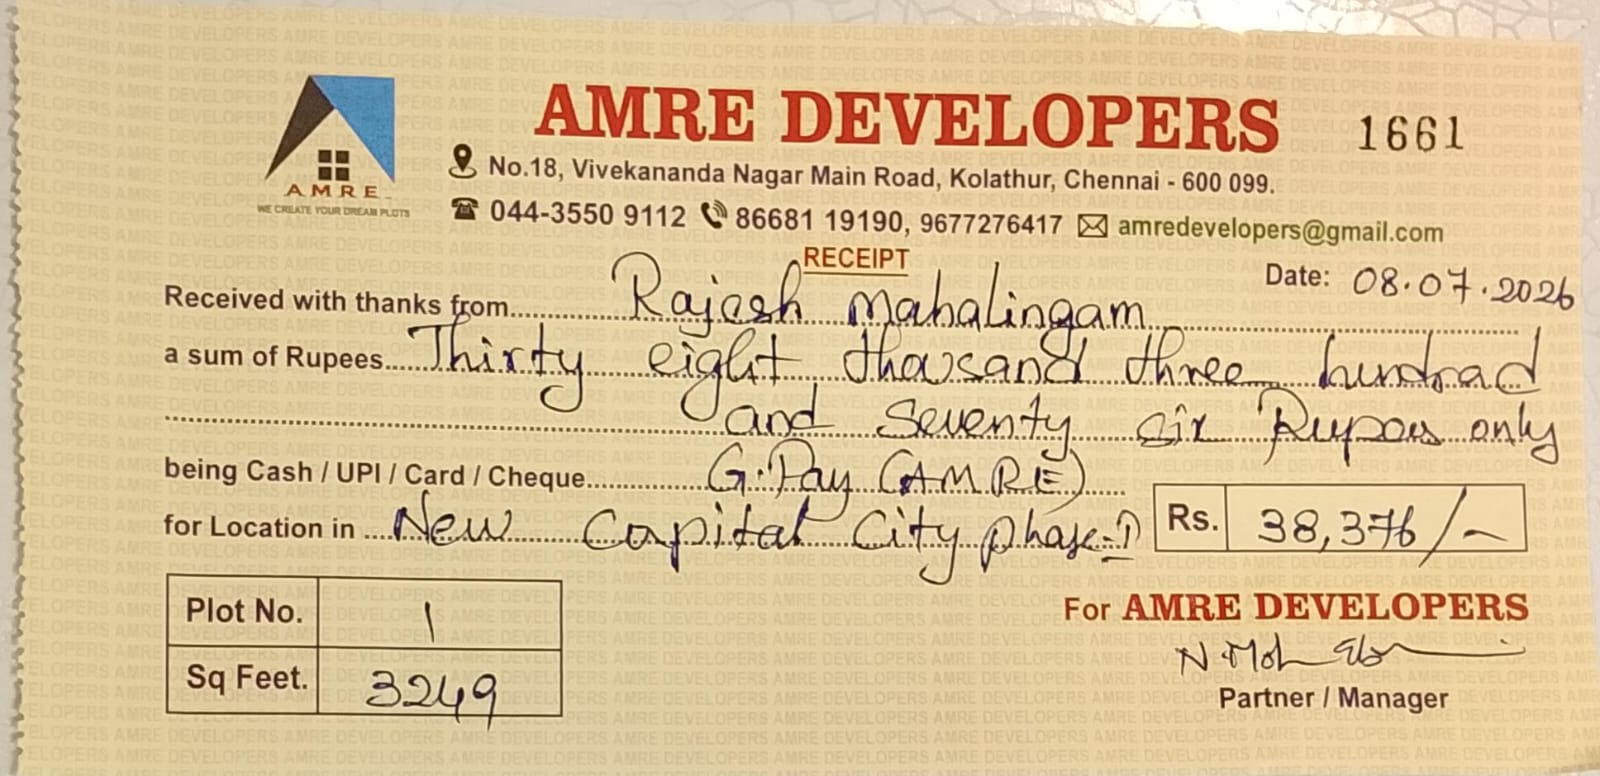 AMRE DEVELOPERS 1661
AMRE
WE CREATE YOUR DREAM PLOTS
No.18, Vivekananda Nagar Main Road, Kolathur, Chennai - 600 099.
044-3550 9112 86681 19190, 9677276417 amredevelopers@gmail.com
RECEIPT
Date: 08.07.2026
Received with thanks from Rajesh Mahalingam
a sum of Rupees Thirty eight thousand three hundrad
and Seventy six Rupees only
being Cash / UPI / Card / Cheque G.Pay (AMRE)
for Location in New Capital City phase-1 Rs. 38,376/-
Plot No. 1
Sq Feet. 3249
For AMRE DEVELOPERS
Partner / Manager